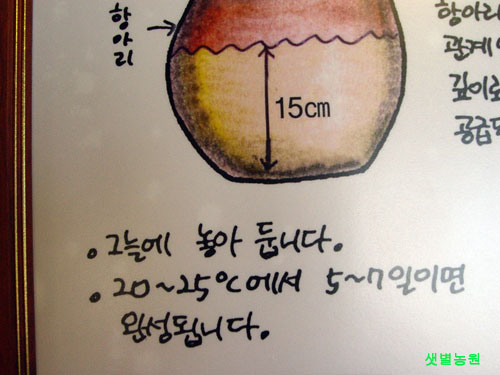 항아리
항아리
관계
깊이로
공급
15cm
• 그늘에 놓아 둡니다.
• 20~25℃에서 5~7일이면
완성됩니다.
샛별농원